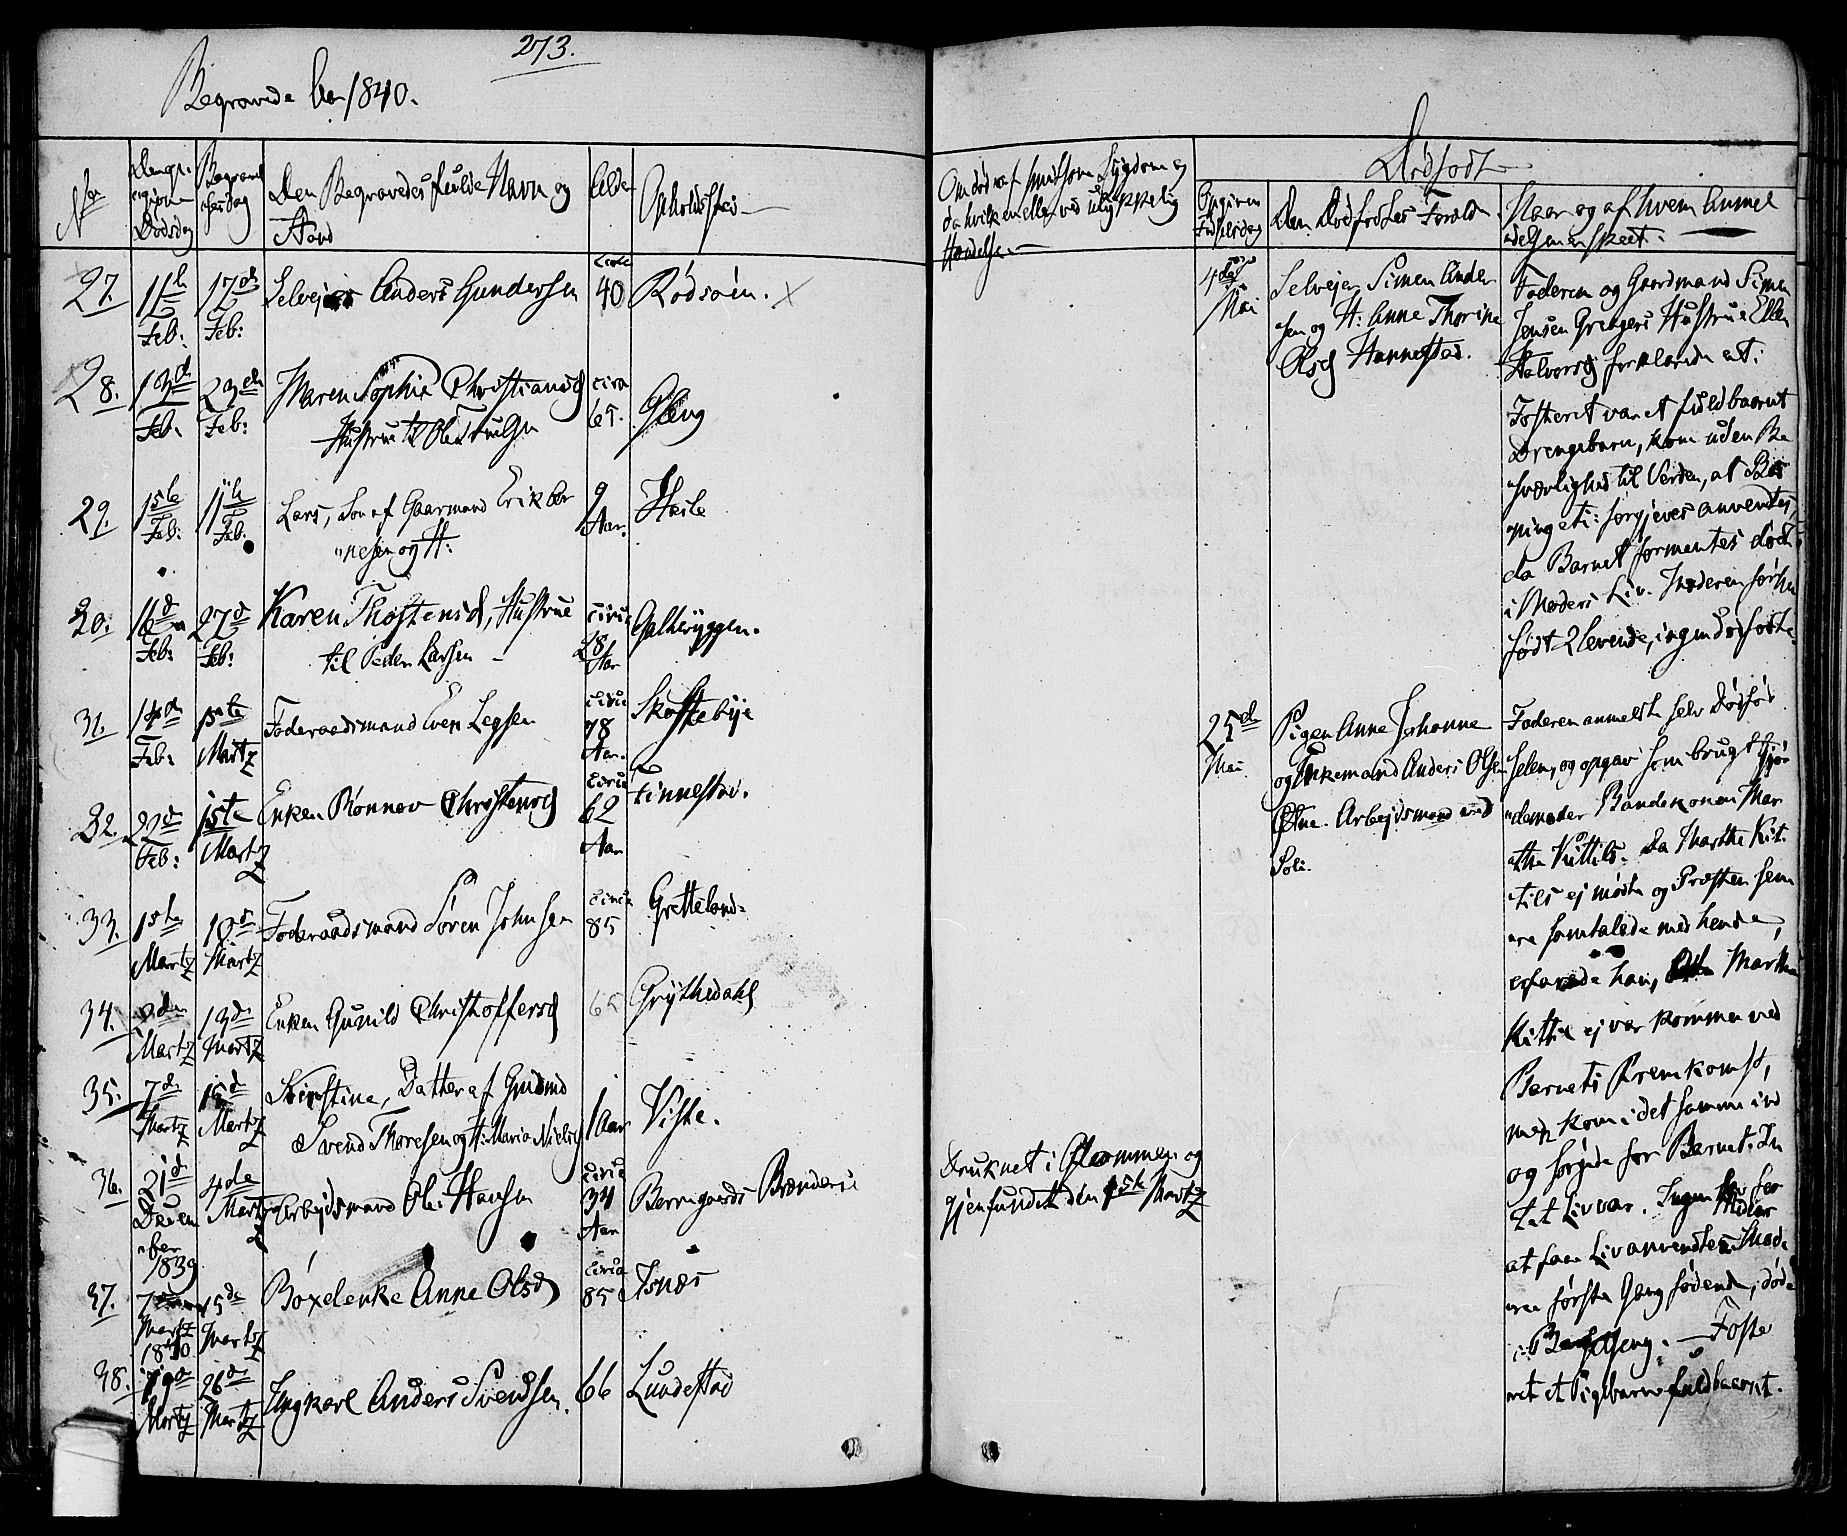 273.
Begravede 1840.
No
Dødsdag
Begravelsesdag
Den Begravedes fulde Navn og
Stand
Alder
Opholdssted
27.
11te
Feb:
17de
Feb:
Selvejer Anders Gundersen
circa
40
Rødsøen.
28.
13d
Feb:
23de
Feb:
Maren Sophie Christiansd
Hustrue til Ole
circa
65.
Gleng
29.
15te
Feb:
11te
Feb:
Lars, Søn af Gaarmand Erik
og H:
9
Aar.
Hasle
30.
16d
Feb:
27d
Feb:
Karen Thostensd, Hustrue
til Peder Larsen
circa
28
Aar
Galteryggen.
31.
14de
Feb:
1ste
Martz
Føderaadsmand Even
circa
78
Aar.
Skoftebye
32.
22d
Feb:
1ste
Martz
Enken Rønnev Christensd
circa
62
Aar
Finnestad.
33.
1ste
Martz
10d
Martz
Føderaadsmand Søren Johnsen
circa
85
Gretteland
34.
Martz
13de
Martz
Enken Gunild Christoffersd
65
Grythedahl
35.
7de
Martz
15d
Martz
Kirstine, Datter af Gmdmd
Svend Thoresen og H: Maria Nielsd
1 Aar
Viste.
36.
21d
Decem
ber
1839
4de
Martz
Arbejdsmand Ole Hansen
circa
34
Aar
Berregaards Brænderie
Druknet i Glommen og
gjenfundet den 1ste Martz
37.
7
Martz
1840
15de
Martz
Anne Olsd
circa
85
Isnæs
38.
19de
Martz
26de
Martz
Ungkarl Anders Svendsen.
66
Lundestad
Om død af smitsom Sygdom og
da hvilken eller ved ulykkelig
Hændelse.
Dødfødt
Opgiven
Fødselsdag
Den Dødfødtes Foræld
Naar og af hvem anmel
delsen er skeet.
4de
Mai
Selvejer Simen Ander
sen og H: Anne Thorine
Olsd Hannestad.
Faderen og Gaardmand Simen
Jensen Hustrue Ellen
Halvorsd forklarede at:
Fosteret var et fuldbaaret
Drengebarn, kom uden Be
sværlighed til Verden, at
forgjeves anvendtes,
da Barnet formentes død
i Moders Liv. Moderen førhen
født 2 levende, ingen dødfødte.
25de
Mai
Pigen Anne Johanne
og Enkemand Anders Olsen
Arbejdsmand ved
Soli.
Faderen anmeldte selv Dødfød
selen, og opgav som brugt Gjor
demoder Bondekonen Mar
the Kittils. Da Marthe Kit
tils ej mødte og Præsten sene
re samtalede med hende,
erfarede han, Marthe
Kittils ej var kommen ved
Barnets Fremkomst,
men kom i det samme ind
og sørgede for Barnet.
tet Liv var. Ingen Midler for
at faae Liv anvendtes. Mode
ren første Gang fødende, døde
i Barselseng. — Foste
ret et Pigebarn fuldbaaret.